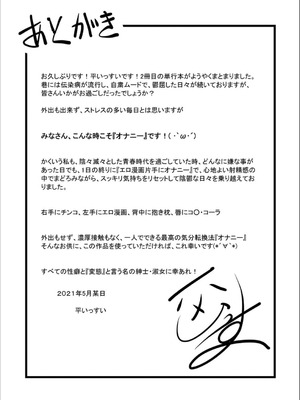 あとがき
お久しぶりです！平いっすいです！2冊目の単行本がようやくまとまりました。
巷には伝染病が流行し、自粛ムードで、鬱屈した日々が続いておりますが、
皆さんいかがお過ごしだったでしょうか？
外出も出来ず、ストレスの多い毎日とは思いますが
みなさん、こんな時こそ『オナニー』です！( ･`ω･´)
かくいう私も、陰々滅々とした青春時代を過ごしていた時、どんなに嫌な事が
あった日でも、1日の終りに『エロ漫画片手にオナニー』で、心地よい射精感の
中でまどろみながら、スッキリ気持ちをリセットして陰鬱な日々を乗り越えてお
りました。
右手にチンコ、左手にエロ漫画、背中に抱き枕、唇にコ〇・コーラ
外出もせず、濃厚接触もなく、一人でできる最高の気分転換法『オナニー』
そんなお供に、この作品を使っていただければ、これ幸いです(*´∀｀*)
すべての性癖と『変態』と言う名の紳士・淑女に幸あれ！
2021年5月某日
平いっすい